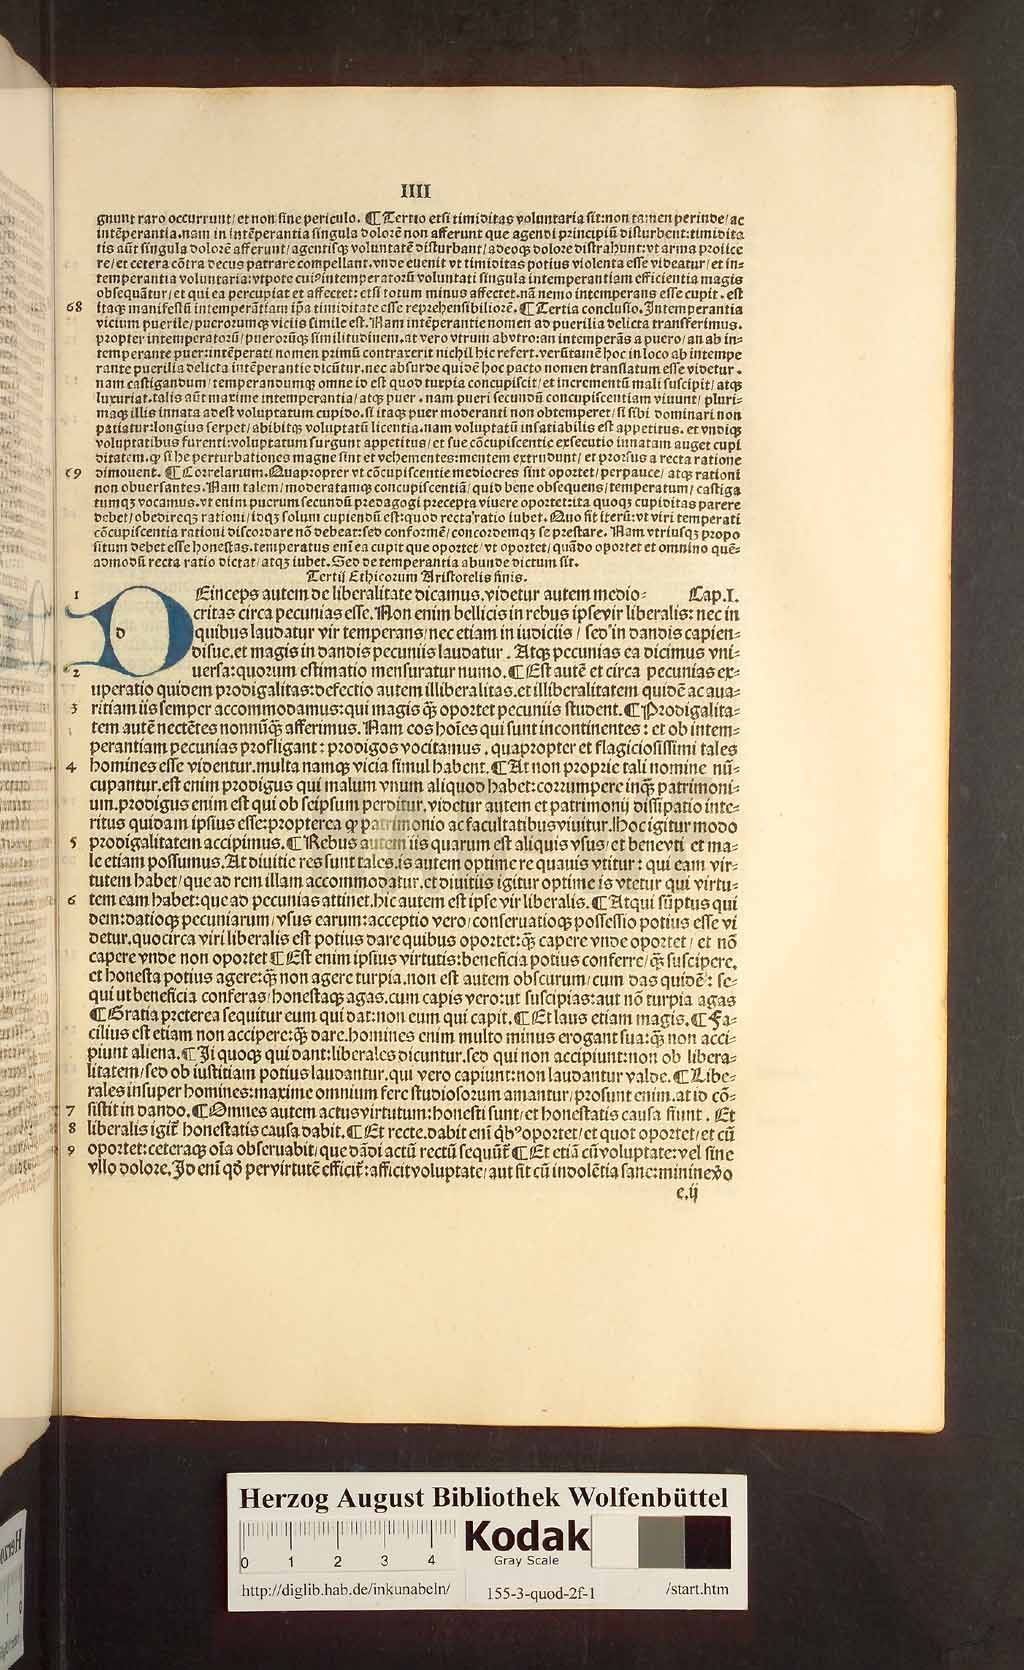 IIII
gnunt raro occurrunt/ et non sine periculo. ¶ Tertio etsi timiditas voluntaria sit:non tamen perinde/ ac
intẽperantia.nam in intẽperantia singula dolorẽ non afferunt que agendi principiũ disturbent:timidita
tis aũt singula dolorẽ afferunt/ agentisqꝫ voluntatẽ disturbant/ adeoqꝫ dolore distrahunt:vt arma proiice
re/ et cetera cõtra decus patrare compellant.vnde euenit vt timiditas potius violenta esse videatur/ et in-
temperantia voluntaria:vtpote cuiꝰ intemperatorũ voluntati singula intemperantiam efficientia magis
obsequãtur/ et qui ea percupiat et affectet: etsi totum minus affectet.nã nemo intemperans esse cupit. est
68 itaqꝫ manifestũ intemperãtiam ip̃a timiditate esse reprehensibiliorẽ. ¶ Tertia conclusio. Intemperantia
vicium puerile/ puerorumqꝫ viciis simile est. Nam intẽperantie nomen ad puerilia delicta transferimus.
propter intemperatorũ/ puerorũqꝫ similitudinem.at vero vtrum abvtro:an intemperãs a puero/ an ab in-
temperante puer:intẽperati nomen primũ contraxerit nichil hic refert.verũtamẽ hoc in loco ab intempe
rante puerilia delicta intẽperantie dicũtur.nec absurde quidẽ hoc pacto nomen translatum esse videtur.
nam castigandum/ temperandumqꝫ omne id est quod turpia concupiscit/ et incrementũ mali suscipit/ atqꝫ
luxuriat.talis aũt maxime intemperantia/ atqꝫ puer. nam pueri secundũ concupiscentiam viuunt/ pluri-
maqꝫ illis innata adest voluptatum cupido.si itaqꝫ puer moderanti non obtemperet/ si sibi dominari non
patiatur:longius serpet/ abibitqꝫ voluptatũ licentia.nam voluptatũ insatiabilis est appetitus. et vndiqꝫ
voluptatibus furenti:voluptatum surgunt appetitus/ et sue cõcupiscentie exsecutio innatam auget cupi
ditatem.ꝙ si he perturbationes magne sint et vehementes:mentem extrudunt/ et prorsus a recta ratione
69 dimouent. ¶ Correlarium. Quapropter vt cõcupiscentie mediocres sint oportet/ perpauce/ atqꝫ rationi
non obuersantes. Nam talem/ moderatamqꝫ concupiscentiã/ quid bene obsequens/ temperatum/ castiga
tumqꝫ vocamus.vt enim puerum secundũ predagogi precepta viuere oportet:ita quoqꝫ cupiditas parere
debet/ obedireqꝫ rationi/ idqꝫ solum cupiendũ est:quod recta ratio iubet. Quo fit iterũ: vt viri temperati
cõcupiscentia rationi discordare nõ debeat:sed conformẽ/ concordemqꝫ se prestare. Nam vtriusqꝫ propo
situm debet esse honestas.temperatus enĩ ea cupit que oportet/ vt oportet/ quãdo oportet et omnino quẽ-
admodũ recta ratio dictat/ atqꝫ iubet. Sed de temperantia abunde dictum sit.
Tertii Ethicorum Aristotelis finis.
1 D d Einceps autem de liberalitate dicamus.videtur autem medio- Cap.I.
critas circa pecunias esse. Non enim bellicis in rebus ipse vir liberalis: nec in
quibus laudatur vir temperans/ nec etiam in iudiciis / sed in dandis capien-
disue.et magis in dandis pecuniis laudatur. Atqꝫ pecunias ea dicimus vni-
2 uersa:quorum estimatio mensuratur numo. ¶ Est autẽ et circa pecunias ex-
uperatio quidem prodigalitas:defectio autem illiberalitas.et illiberalitatem quidẽ ac aua-
3 ritiam iis semper accommodamus:qui magis ꝙ̃ oportet pecuniis student. ¶ Prodigalita-
tem autẽ nectẽtes nonnũꝙ̃ afferimus. Nam eos hoĩes qui sunt incontinentes: et ob intem-
perantiam pecunias profligant: prodigos vocitamus. quapropter et flagiciosissimi tales
4 homines esse videntur.multa namqꝫ vicia simul habent. ¶ At non proprie tali nomine nũ-
cupantur.est enim prodigus qui malum vnum aliquod habet:corrumpere inqꝫ patrimoni-
um.prodigus enim est qui ob seipsum perditur.videtur autem et patrimonij dissipatio inte-
ritus quidam ipsius esse:propterea ꝙ patrimonio ac facultatibus viuitur. Hoc igitur modo
5 prodigalitatem accipimus. ¶ Rebus autem iis quarum est aliquis vsus/ et bene vti et ma-
le etiam possumus. At diuitie res sunt tales.is autem optime re quauis vtitur: qui eam vir-
tutem habet/ que ad rem illam accommodatur.et diuitiis igitur optime is vtetur qui virtu-
6 tem eam habet:que ad pecunias attinet.hic autem est ipse vir liberalis. ¶ Atqui sũptus qui
dem:datioqꝫ pecuniarum/ vsus earum:acceptio vero/ conseruatioqꝫ possessio potius esse vi
detur.quocirca viri liberalis est potius dare quibus oportet:ꝙ̃ capere vnde oportet/ et nõ
capere vnde non oportet ¶ Est enim ipsius virtutis:beneficia potius conferre/ ꝙ̃ suscipere.
et honesta potius agere:ꝙ̃ non agere turpia.non est autem obscurum/ cum das quidẽ: se-
qui ut beneficia conferas/ honestaqꝫ agas.cum capis vero:ut suscipias:aut nõ turpia agas
¶ Gratia preterea sequitur eum qui dat:non eum qui capit. ¶ Et laus etiam magis. ¶ Fa-
cilius est etiam non accipere:ꝙ̃ dare.homines enim multo minus erogant sua:ꝙ̃ non acci-
piunt aliena. ¶ Ii quoqꝫ qui dant:liberales dicuntur.sed qui non accipiunt:non ob libera-
litatem/ sed ob iustitiam potius laudantur.qui vero capiunt:non laudantur valde. ¶ Libe-
rales insuper homines:maxime omnium fere studiosorum amantur/ prosunt enim.at id cõ-
7 sistit in dando. ¶ Omnes autem actus virtutum:honesti sunt/ et honestatis causa fiunt. Et
8 liberalis igit̃ honestatis causa dabit. ¶ Et recte.dabit enĩ q̃bꝰ oportet/ et quot oportet/ et cũ
9 oportet:ceteraqꝫ oĩa obseruabit/ que dãdi actũ rectũ sequũt̃ ¶ Et etiã cũ voluptate:vel sine
vllo dolore. Id enĩ qd̃ per virtutẽ efficit̃:afficit voluptate/ aut fit cũ indolẽtia sane:minimeṽo
e.ij
Herzog August Bibliothek Wolfenbüttel
0 1 2 3 4
Kodak
Gray Scale
http://diglib.hab.de/inkunabeln/
155-3-quod-2f-1
/start.htm